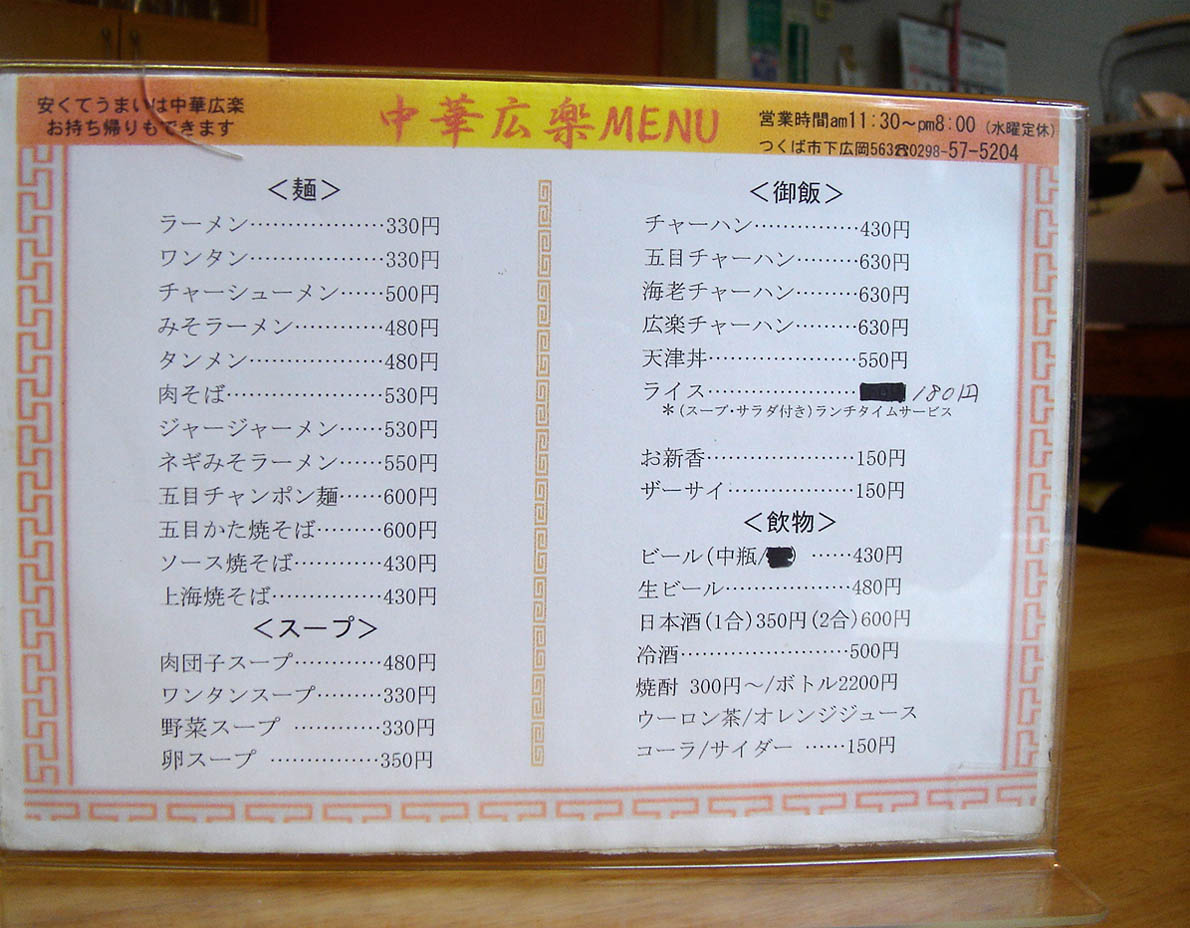 安くてうまいは中華広楽
お持ち帰りもできます
中華広楽MENU
営業時間am11:30～pm8:00（水曜定休）
つくば市下広岡563☎0298-57-5204
＜麺＞
ラーメン………………330円
ワンタン………………330円
チャーシューメン……500円
みそラーメン…………480円
タンメン………………480円
肉そば…………………530円
ジャージャーメン……530円
ネギみそラーメン……550円
五目チャンポン麺……600円
五目かた焼そば………600円
ソース焼そば…………430円
上海焼そば……………430円
＜スープ＞
肉団子スープ…………480円
ワンタンスープ………330円
野菜スープ …………330円
卵スープ ……………350円
＜御飯＞
チャーハン……………430円
五目チャーハン………630円
海老チャーハン………630円
広楽チャーハン………630円
天津丼…………………550円
ライス…………………180円
＊(スープ・サラダ付き)ランチタイムサービス
お新香…………………150円
ザーサイ………………150円
＜飲物＞
ビール(中瓶/ ) ……430円
生ビール………………480円
日本酒(1合)350円(2合)600円
冷酒……………………500円
焼酎 300円～/ボトル2200円
ウーロン茶/オレンジジュース
コーラ/サイダー ……150円